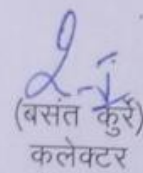 (बसंत कुर्रे)
कलेक्टर